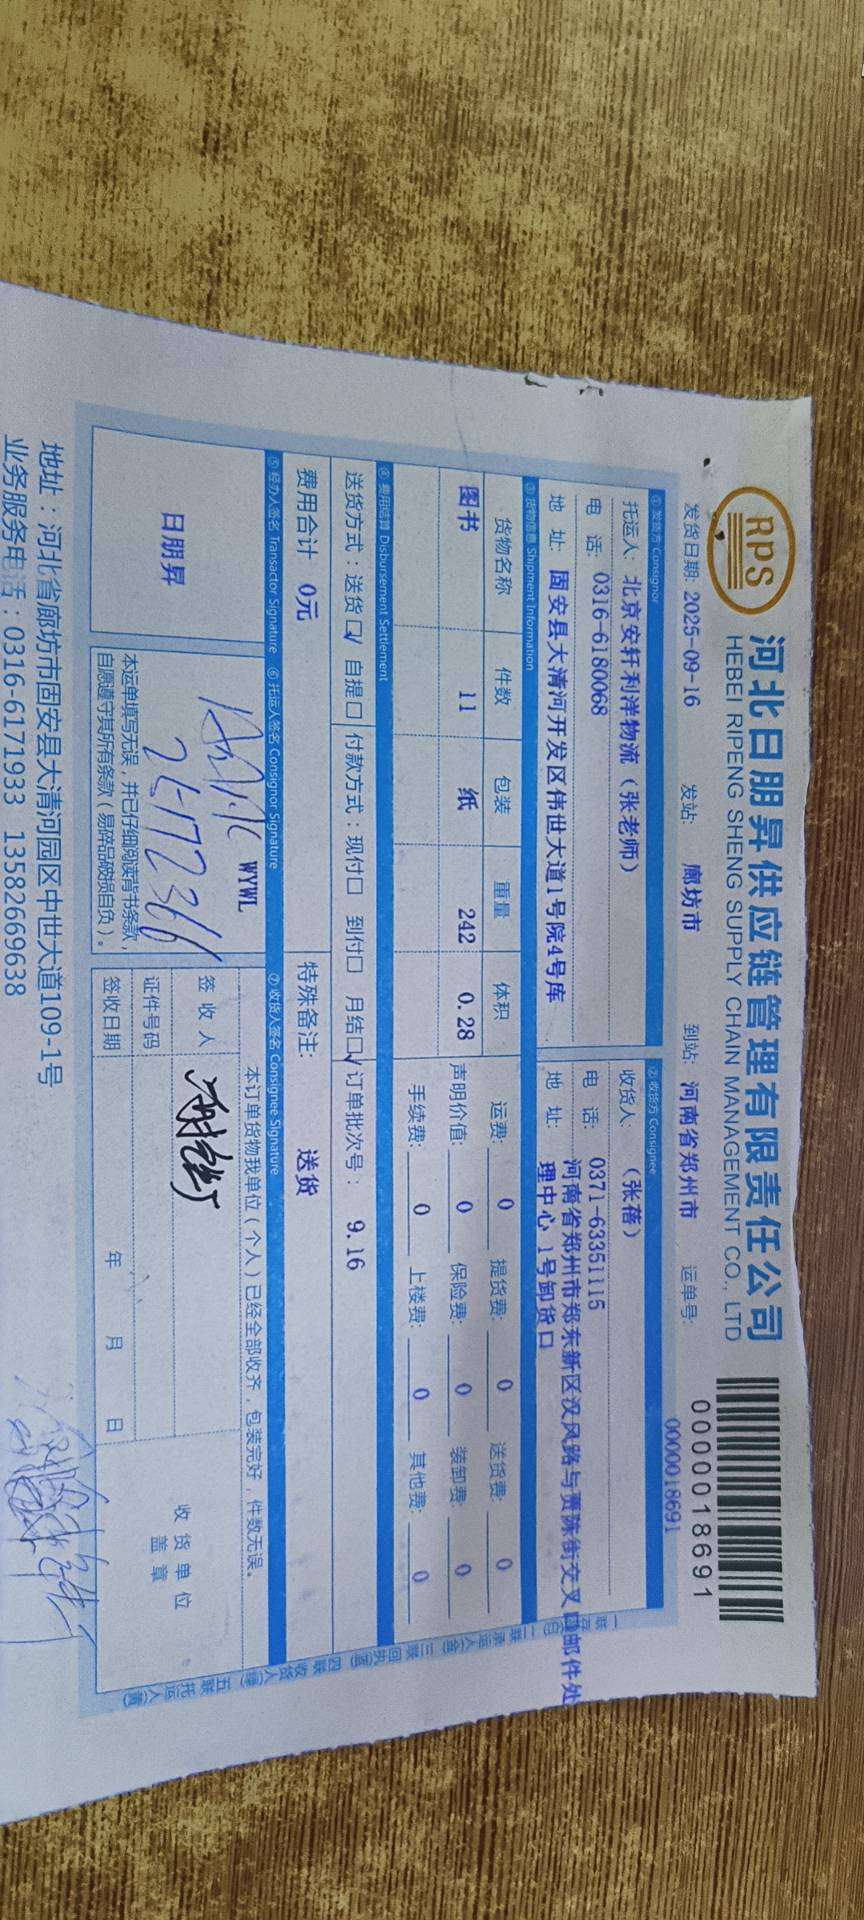 RPS
河北日朋昇供应链管理有限责任公司
HEBEI RIPENG SHENG SUPPLY CHAIN MANAGEMENT CO., LTD
0000018691
发货日期: 2025-09-16 发站: 廊坊市 到站: 河南省郑州市 运单号: 0000018691
① 发货方 Consignor ② 收货方 Consignee
托运人: 北京安轩利洋物流（张老师） 收货人: （张蓓）
电 话: 0316-6180068 电 话: 0371-63351115
地 址: 固安县大清河开发区伟世大道1号院4号库 地 址: 河南省郑州市郑东新区汉风路与贾陈街交叉口邮件处
理中心 1号卸货口
③ 货物信息 Shipment Information
货物名称 件数 包装 重量 体积 运费: 0 提货费: 0 送货费: 0
图书 11 纸 242 0.28 声明价值: 0 保险费: 0 装卸费: 0
手续费: 0 上楼费: 0 其他费: 0
④ 费用结算 Disbursement Settlement
送货方式：送货☑ 自提□ 付款方式：现付□ 到付□ 月结☑ 订单批次号： 9.16
费用合计 0元 特殊备注: 送货
⑤ 经办人签名 Transactor Signature ⑥ 托运人签名 Consignor Signature ⑦ 收货人签名 Consignee Signature
日朋昇
WYWL
本运单填写无误，并已仔细阅读背书条款，
自愿遵守其所有条款（易碎品破损自负）。
本订单货物我单位（个人）已经全部收齐，包装完好，件数无误。
签 收 人
证件号码
签收日期 年 月 日
收货单位
盖章
地址：河北省廊坊市固安县大清河园区中世大道109-1号
业务服务电话：0316-6171933 13582669638